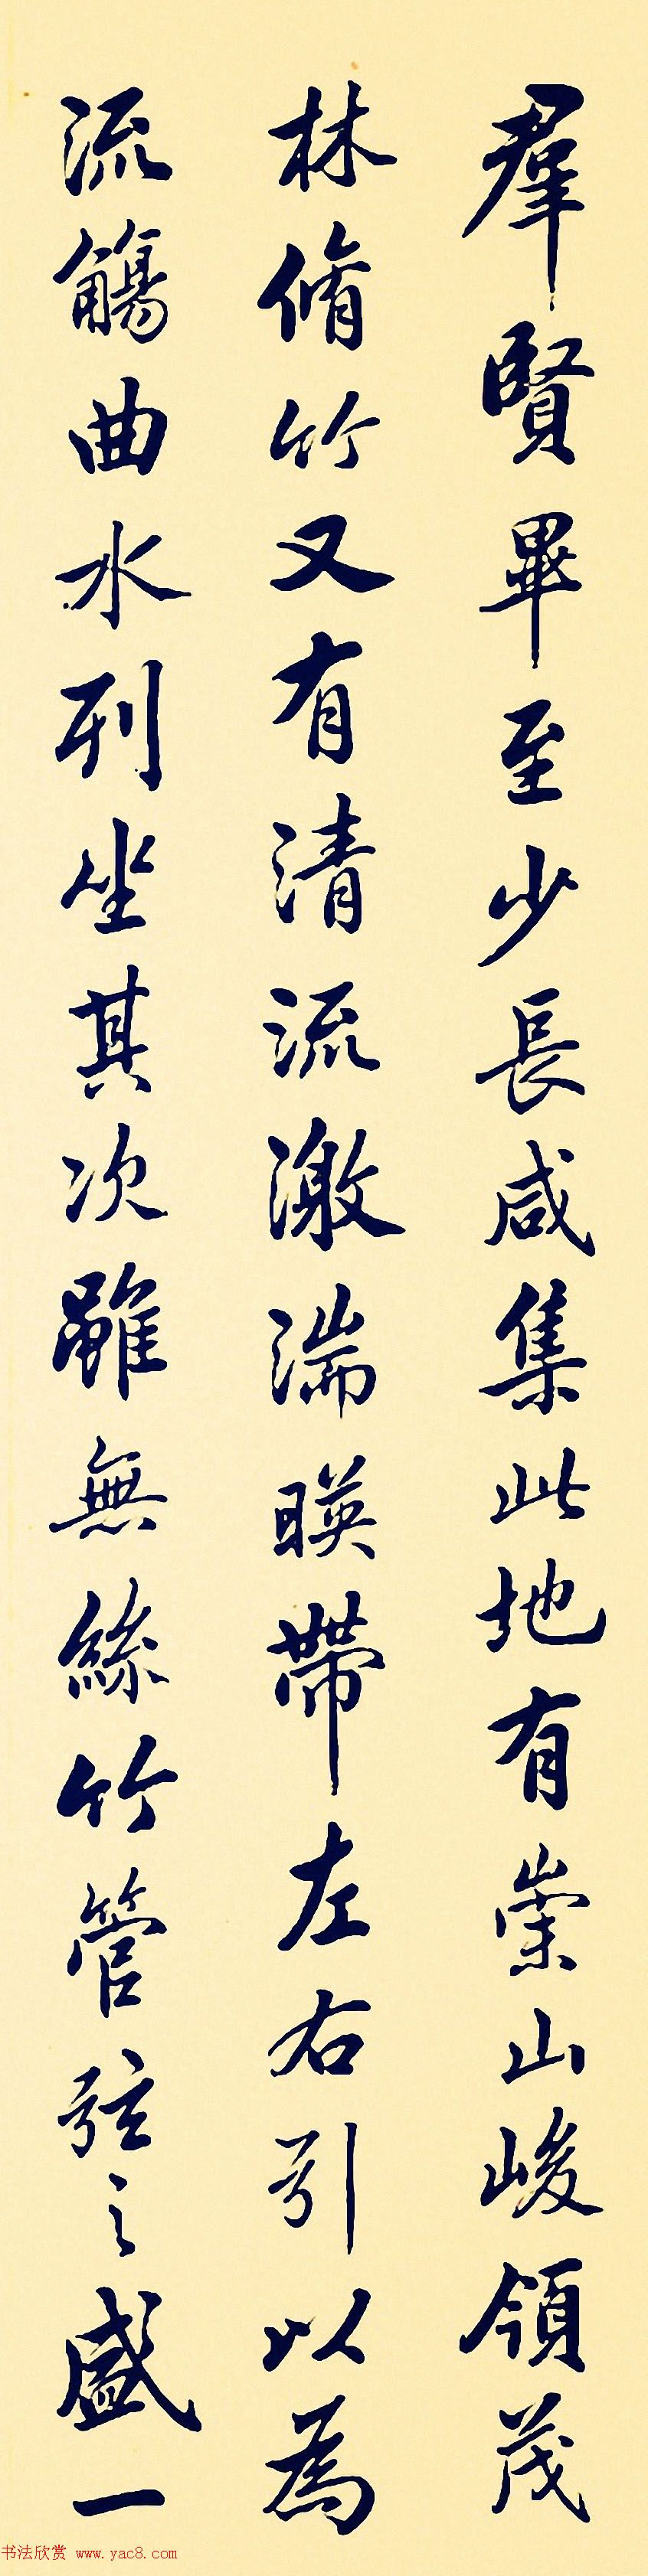 羣賢畢至少長咸集此地有崇山峻領茂
林脩竹又有清流激湍暎帶左右引以為
流觴曲水列坐其次雖無絲竹管弦之盛一
书法欣赏 www.yac8.com